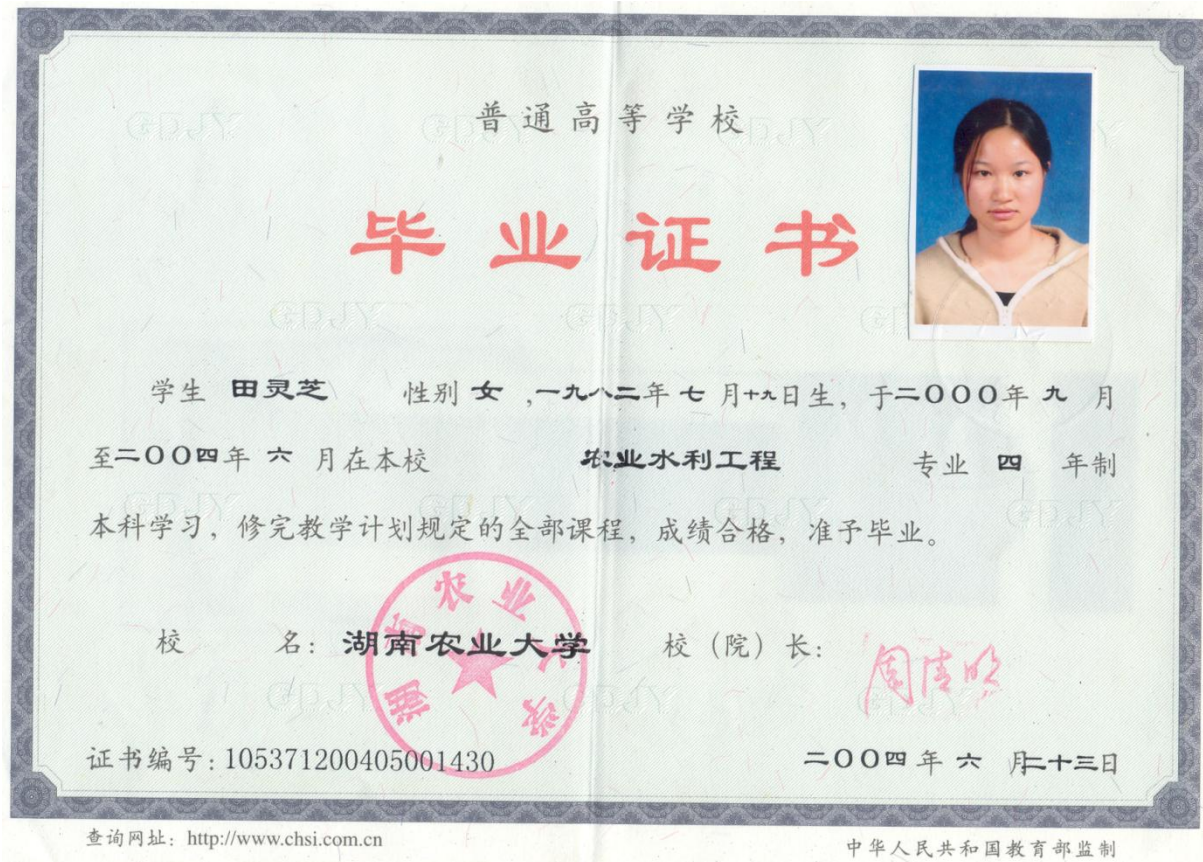 普通高等学校
毕业证书
学生 田灵芝 性别 女 ,一九八二年 七 月十九日生，于二〇〇〇年 九 月
至二〇〇四年 六 月在本校 农业水利工程 专业 四 年制
本科学习，修完教学计划规定的全部课程，成绩合格，准予毕业。
湖南农业大学
校 名：湖南农业大学 校（院）长：周清明
证书编号：105371200405001430 二〇〇四年 六 月二十三日
查询网址：http://www.chsi.com.cn 中华人民共和国教育部监制
GDJY